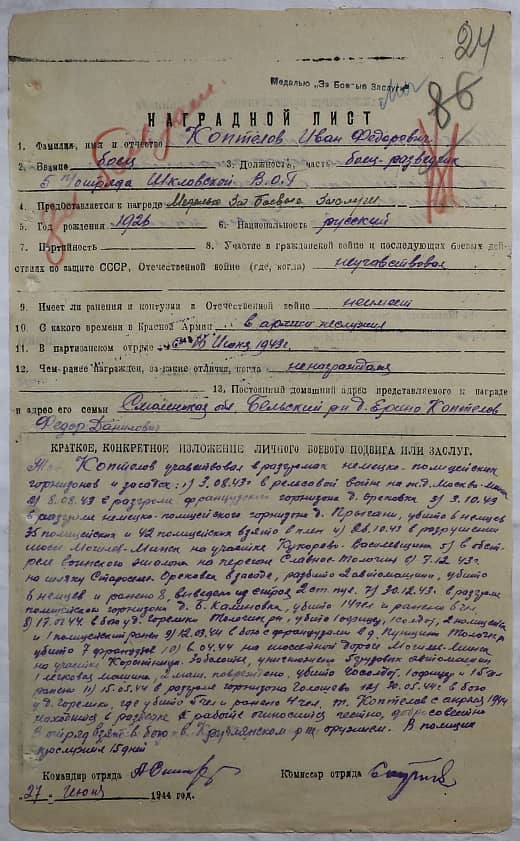 24
Медалью „За Боевые Заслуги"
86
НАГРАДНОЙ ЛИСТ
1. Фамилия, имя и отчество Коптелов Иван Федорович
2. Звание боец 3. Должность, часть боец-разведчик
5 отряда Шкловской В.О.Г
4. Представляется к награде Медалью За Боевые Заслуги
5. Год рождения 1926 6. Национальность русский
7. Партийность 8. Участие в гражданской войне и последующих боевых дей-
ствиях по защите СССР, Отечественной войне (где, когда) неучавствовал
9. Имеет ли ранения и контузии в Отечественной войне неимеет
10. С какого времени в Красной Армии в армии неслужил
11. В партизанском отряде Июня 1943г.
12. Чем ранее награжден, за какие отличия, когда ненагражден
13. Постоянный домашний адрес представляемого к награде
и адрес его семьи Смоленская обл Бельский р-н д. Коптелов
Федор Данилович
КРАТКОЕ, КОНКРЕТНОЕ ИЗЛОЖЕНИЕ ЛИЧНОГО БОЕВОГО ПОДВИГА ИЛИ ЗАСЛУГ.
Коптелов учавствовал в разгромах немецко-полицейских
гарнизонов и засадах: 1) 3.08.43г в рельсовой войне на ж.д. Москва-Минск
2) 8.08.43 в разгроме французского гарнизона д. Ореховка 3) 3.10.43
в разгроме немецко-полицейского гарнизона д. убито 6 немцев
35 полицейских и 42 полицейских взято в плен 4) 28.10.43 в разрушении
шоссе Могилев-Минск на участке 5) в обст-
реле воинского эшелона на перегон Славное-Толочин 6) 7.12.43г
на шляху Староселье Ореховка в засаде, разбито 2 автомашины, убито
6 немцев и ранено 8, выведен из строя 2 ст. пул. 7) 30.12.43г. в разгроме
полицейского гарнизона д. убито 14 чел и ранено 6 чел.
8) 17.01.44 в бою д. Толоч. р-н, убито 1 офицер, 1 солдат, 2 полицейских
и 1 полицейский ранен 9) 12.03.44 в бою с французами в д. Толоч. р-н
убито 7 французов 10) в 04.44 на шоссейной дороге Могилев-Минск
на участке уничтожено 5 грузовых автомашин
1 легковая машина, 2 маш. повреждено, убито 1 офицер и 15 чел
ранено 11) 15.05.44 в разгроме гарнизона 12) 30.05.44г. в бою
у д. где убито 5 чел и ранено 4 чел. т. Коптелов с апреля 1944
находился в разведке к работе относился честно, добросовестно
В отряд взят в бою в Круглянском р-не с оружием. В полиции
прослужил 15 дней
Командир отряда Комиссар отряда
„27" июня 1944 год.